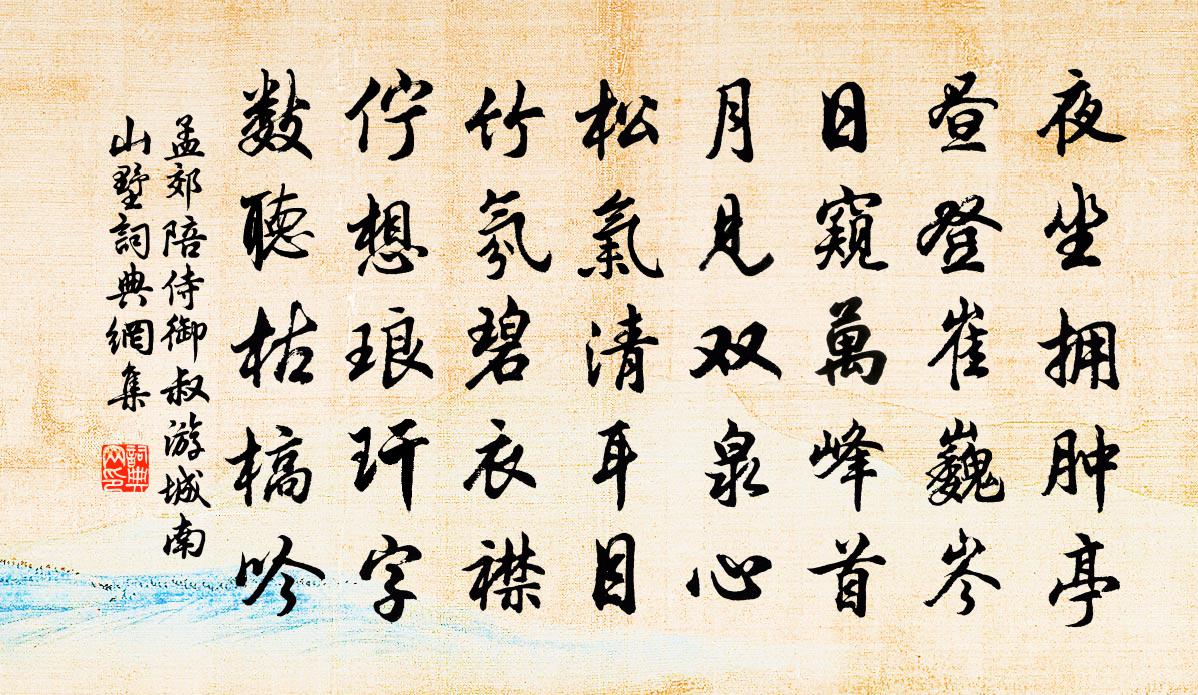 夜坐拥肿亭
昼登崔巍岑
日窥萬峰首
月見双泉心
松氣清耳目
竹氛碧衣襟
佇想琅玕字
数聽枯槁吟
孟郊陪侍御叔游城南
山墅詞典網集
詞典網印